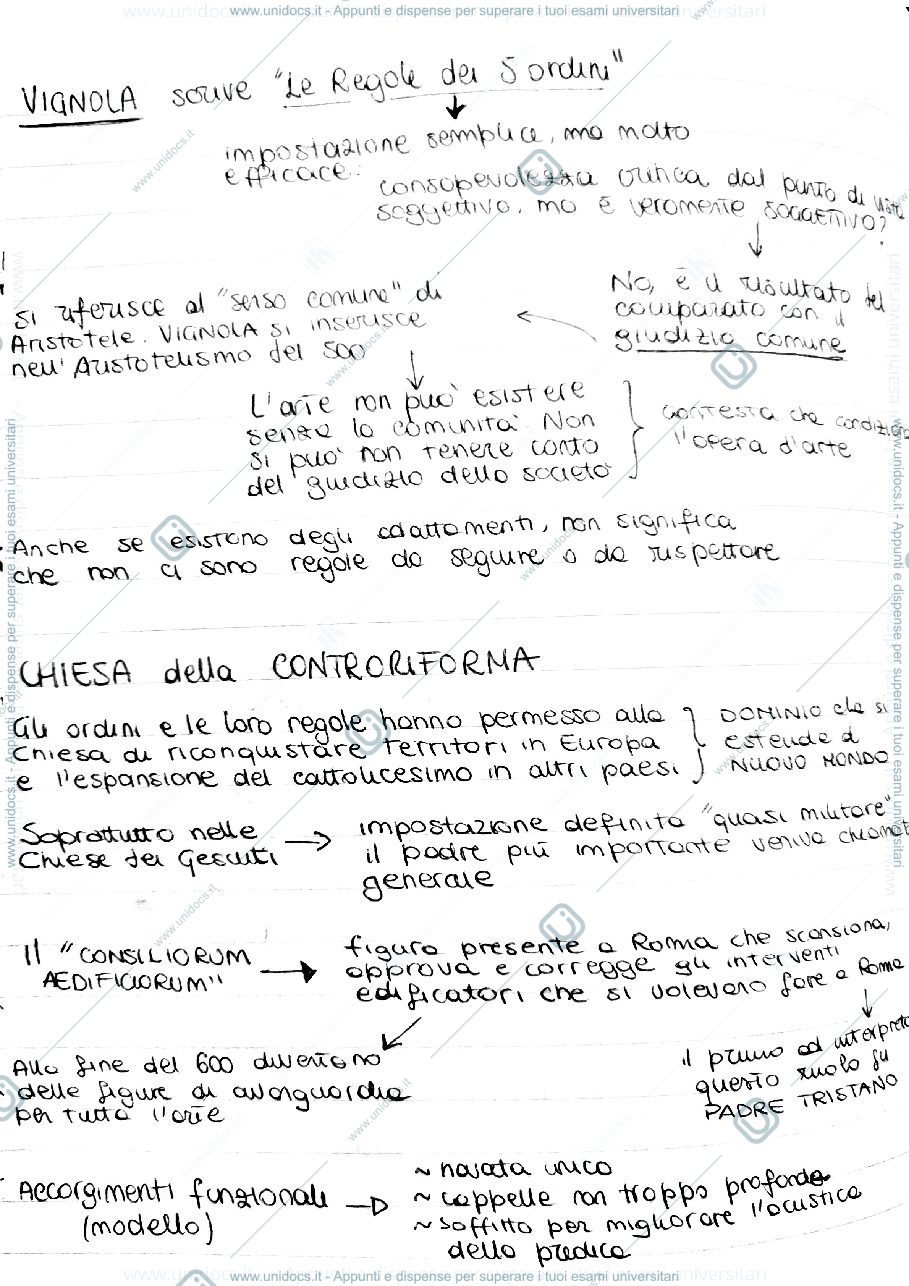 www.unidocs.it - Appunti e dispense per superare i tuoi esami universitari
VIGNOLA scrive "Le Regole dei 5 ordini"
impostazione semplice, ma molto
efficace.
consapevolezza critica dal punto di vista
soggettivo, ma è veramente SOGGETTIVO?
No, è il risultato del
comparato con il
giudizio comune
si riferisce al "senso comune" di
Aristotele. VIGNOLA si inserisce
nell'Aristotelismo del 500
L'arte non può esistere
senza la comunità. Non
si può non tenere conto
del giudizio della società
contesta che condiziona
l'opera d'arte
Anche se esistono degli adattamenti, non significa
che non ci sono regole da seguire o da rispettare
CHIESA della CONTRORIFORMA
Gli ordini e le loro regole hanno permesso alla
Chiesa di riconquistare territori in Europa
e l'espansione del cattolicesimo in altri paesi.
DOMINIO che si
estende al
NUOVO MONDO
Soprattutto nelle
Chiese dei Gesuiti
impostazione definita "quasi militare"
il padre più importante veniva chiamat
generale
Il "CONSILIORUM
AEDIFICIORUM"
figura presente a Roma che scansiona,
approva e corregge gli interventi
edificatori che si volevano fare a Roma
il primo ad interpreta
questo ruolo fu
PADRE TRISTANO
Alla fine del 600 diventano
delle figure di avanguardia
per tutta l'arte
Accorgimenti funzionali
(modello)
~ navata unica
~ cappelle non troppo profonde
~ soffitto per migliorare l'acustica
della predica
www.unidocs.it - Appunti e dispense per superare i tuoi esami universitari